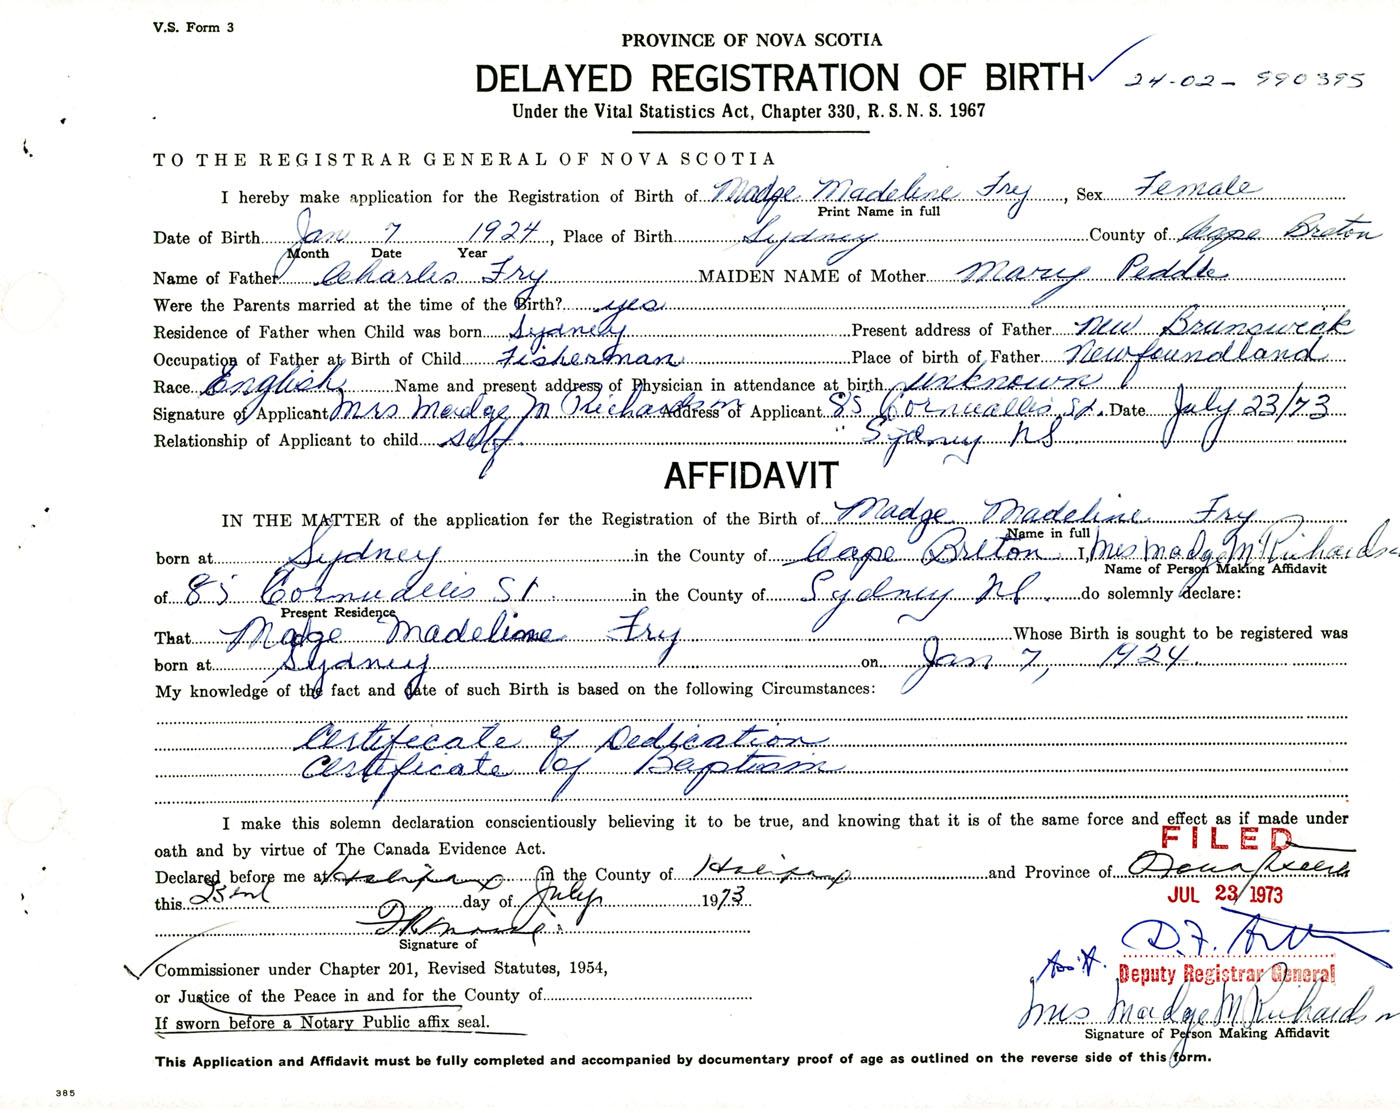 V.S. Form 3
PROVINCE OF NOVA SCOTIA
DELAYED REGISTRATION OF BIRTH 24-02-990395
Under the Vital Statistics Act, Chapter 330, R.S.N.S. 1967
TO THE REGISTRAR GENERAL OF NOVA SCOTIA
I hereby make application for the Registration of Birth of Madge Madeline Fry, Sex Female
Print Name in full
Date of Birth Jan 7 1924, Place of Birth Sydney County of Cape Breton
Month Date Year
Name of Father Charles Fry MAIDEN NAME of Mother Mary Peddle
Were the Parents married at the time of the Birth? yes
Residence of Father when Child was born Sydney Present address of Father New Brunswick
Occupation of Father at Birth of Child Fisherman Place of birth of Father Newfoundland
Race English Name and present address of Physician in attendance at birth unknown
Signature of Applicant Mrs Madge M Richardson Address of Applicant 85 Cornwallis St. Date July 23/73
Relationship of Applicant to child self. Sydney NS
AFFIDAVIT
IN THE MATTER of the application for the Registration of the Birth of Madge Madeline Fry
Name in full
born at Sydney in the County of Cape Breton I, Mrs Madge M Richardson
Name of Person Making Affidavit
of 85 Cornwallis St. in the County of Sydney NS. do solemnly declare:
Present Residence
That Madge Madeline Fry Whose Birth is sought to be registered was
born at Sydney on Jan 7, 1924.
My knowledge of the fact and date of such Birth is based on the following Circumstances:
Certificate of Dedication
Certificate of Baptism
I make this solemn declaration conscientiously believing it to be true, and knowing that it is of the same force and effect as if made under
oath and by virtue of The Canada Evidence Act.
FILED
Declared before me at Halifax in the County of Halifax and Province of Nova Scotia
this day of July 1973
JUL 23 1973
Signature of
D.F.
Commissioner under Chapter 201, Revised Statutes, 1954,
Ass't. Deputy Registrar General
or Justice of the Peace in and for the County of
Mrs Madge M Richardson
If sworn before a Notary Public affix seal.
Signature of Person Making Affidavit
This Application and Affidavit must be fully completed and accompanied by documentary proof of age as outlined on the reverse side of this form.
385